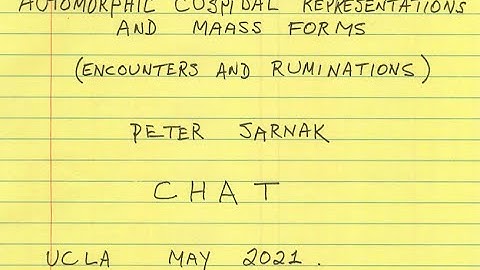 AUTOMORPHIC CUSPIDAL REPRESENTATIONS
AND MAASS FORMS
(ENCOUNTERS AND RUMINATIONS)
PETER SARNAK
CHAT
UCLA MAY 2021.